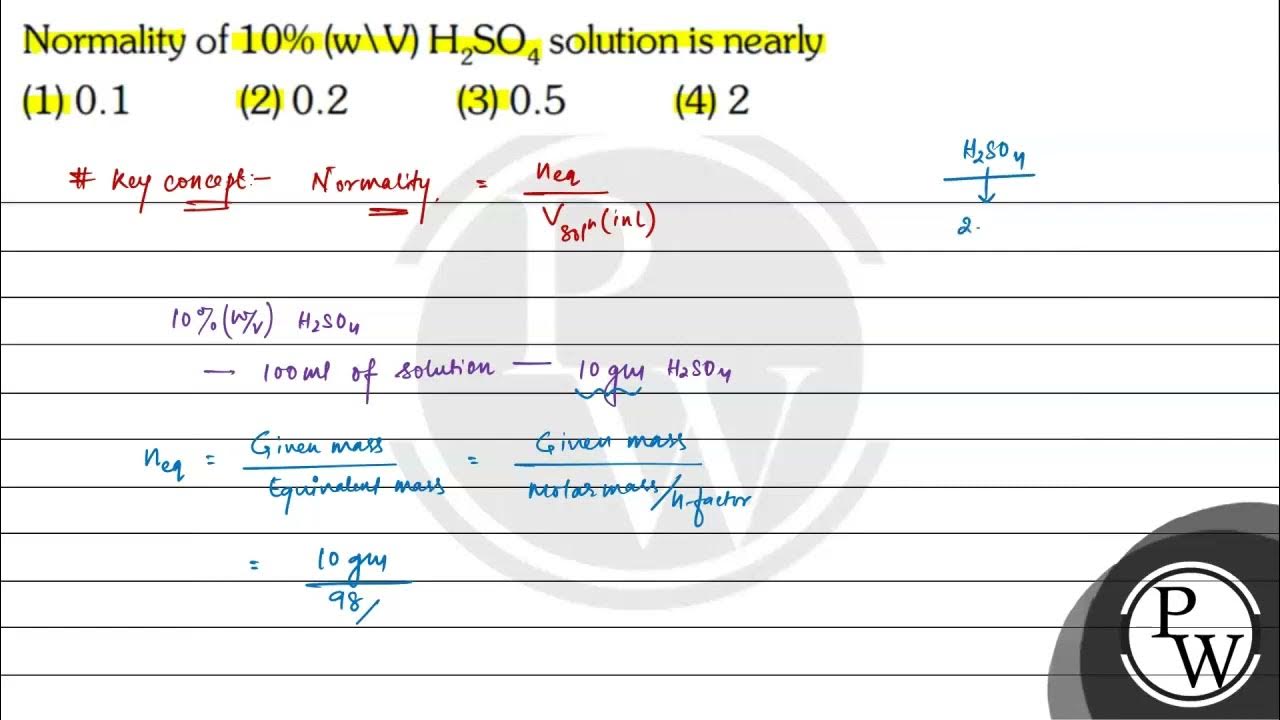 Normality of 10% (w\V) H₂SO₄ solution is nearly
(1) 0.1 (2) 0.2 (3) 0.5 (4) 2
# Key concept:- Normality = neq / Vsolⁿ(in L)
H₂SO₄
2.
10% (w/v) H₂SO₄
— 100 ml of solution — 10 gm H₂SO₄
neq = Given mass / Equivalent mass = Given mass / Molar mass/n-factor
= 10 gm / 98/
P
W
P
W